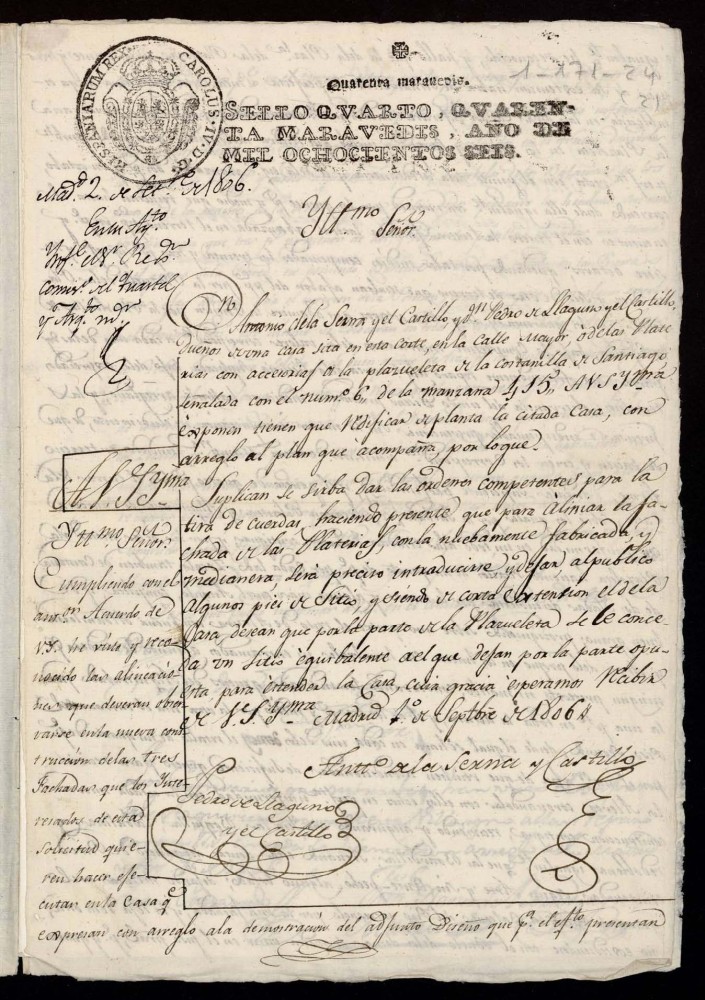 HISPANIARUM REX CAROLUS·IV·D·G·
Quarenta maravedis.
1-171-24
21
SELLO QVARTO, QVAREN-
TA MARAVEDIS, AÑO DE
MIL OCHOCIENTOS SEIS.
Mad.d 2. de Set.e de 1806.
En su Ay.to
Ynf.e el Sr. Reg.r
Comis.o del Quartel
y Arq.to m.or
Yll.mo Señor.
Dn. Antonio dela Serna y el Castillo y dn. Pedro de Llaguno y el Castillo,
Dueños de una casa sita en esta corte, en la Calle Mayor, ò de las Plate
rias con accesorias à la plazueleta de la costanilla de Santiago
señalada con el num.o 6,, de la manzana 415,, A V S Yma
èxponen tienen que redificar de planta la citada Casa, con
àrreglo al plan que àcompaña, por loque.
Suplican se sirba dar las òrdenes competentes para la
tira de cuerdas, haciendo presente que para àliniar la fa-
chada de las Platerias, con la nuebamente fabricada, y
medianera, serà preciso introducirse y dejar al publico
algunos pies de sitio, y siendo de corta extension el de la
Casa, desean que por la parte de la Plazueleta se le conce-
da un sitio èquibalente àel que dejan por la parte opu-
esta para èstender la Casa, cuia gracia èsperamos recibir
de V. S. Yma. Madrid 1.o de Septbre de 1806.
Antt.o de la Serna y Castillo
Pedro de Llaguno
y el Castillo
A V. S. Yma
Yll.mo Señor.
Cumpliendo con el
ant.or Acuerdo de
V.S. he visto y reco-
nocido las alineacio-
nes que deveran obser
varse en la nueva cons
trucción de las tres
Fachadas que los Ynte-
resados de esta
solicitud quie-
ren hacer eje-
cutar en la Casa q.e
expresan con arreglo ala demostración del adjunto Diseño que p.a el ef.to presentan